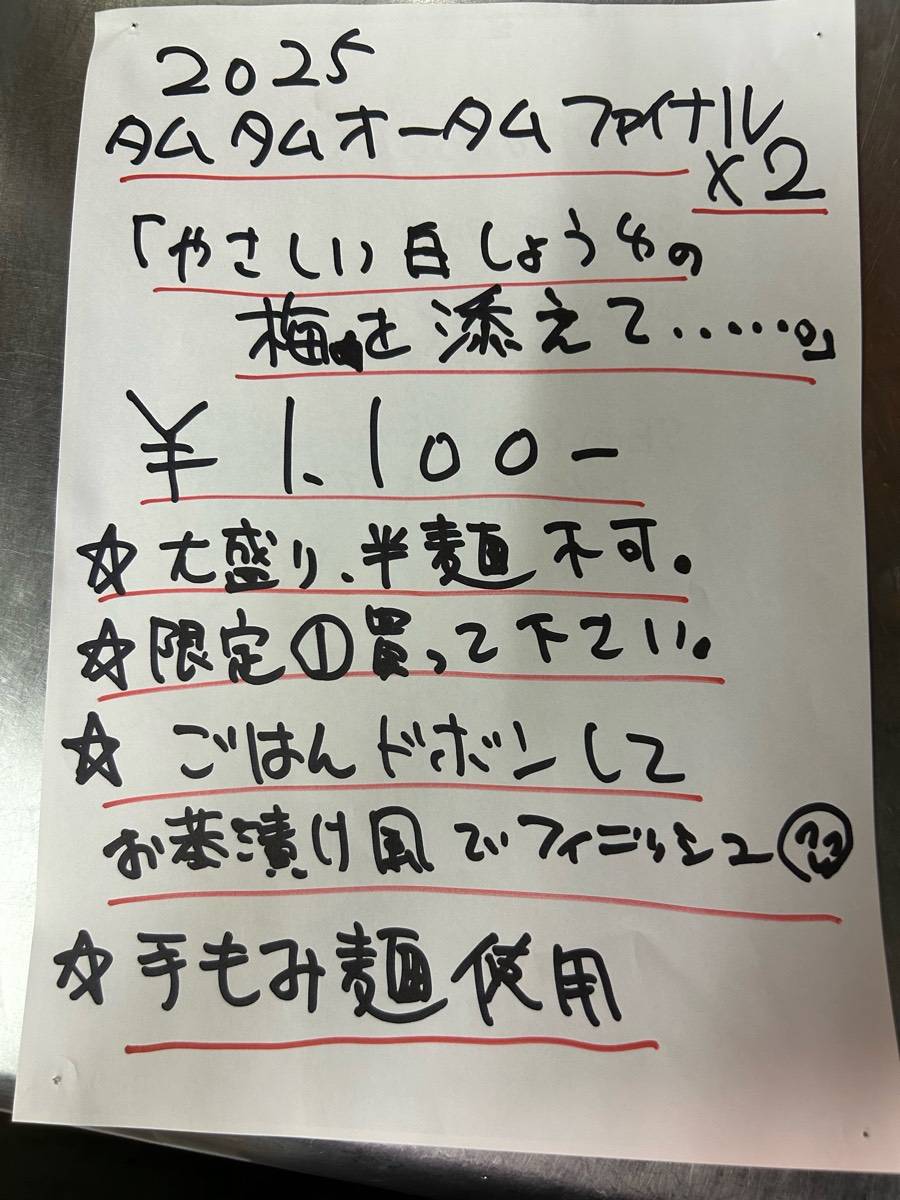 2025
タムタムオータムファイナル
×2
「やさしい白しょうゆの
梅を添えて……。」
¥1.100-
☆大盛り、半麺不可。
☆限定①買って下さい。
☆ごはんドボンして
お茶漬け風でフィニッシュ
☆手もみ麺使用